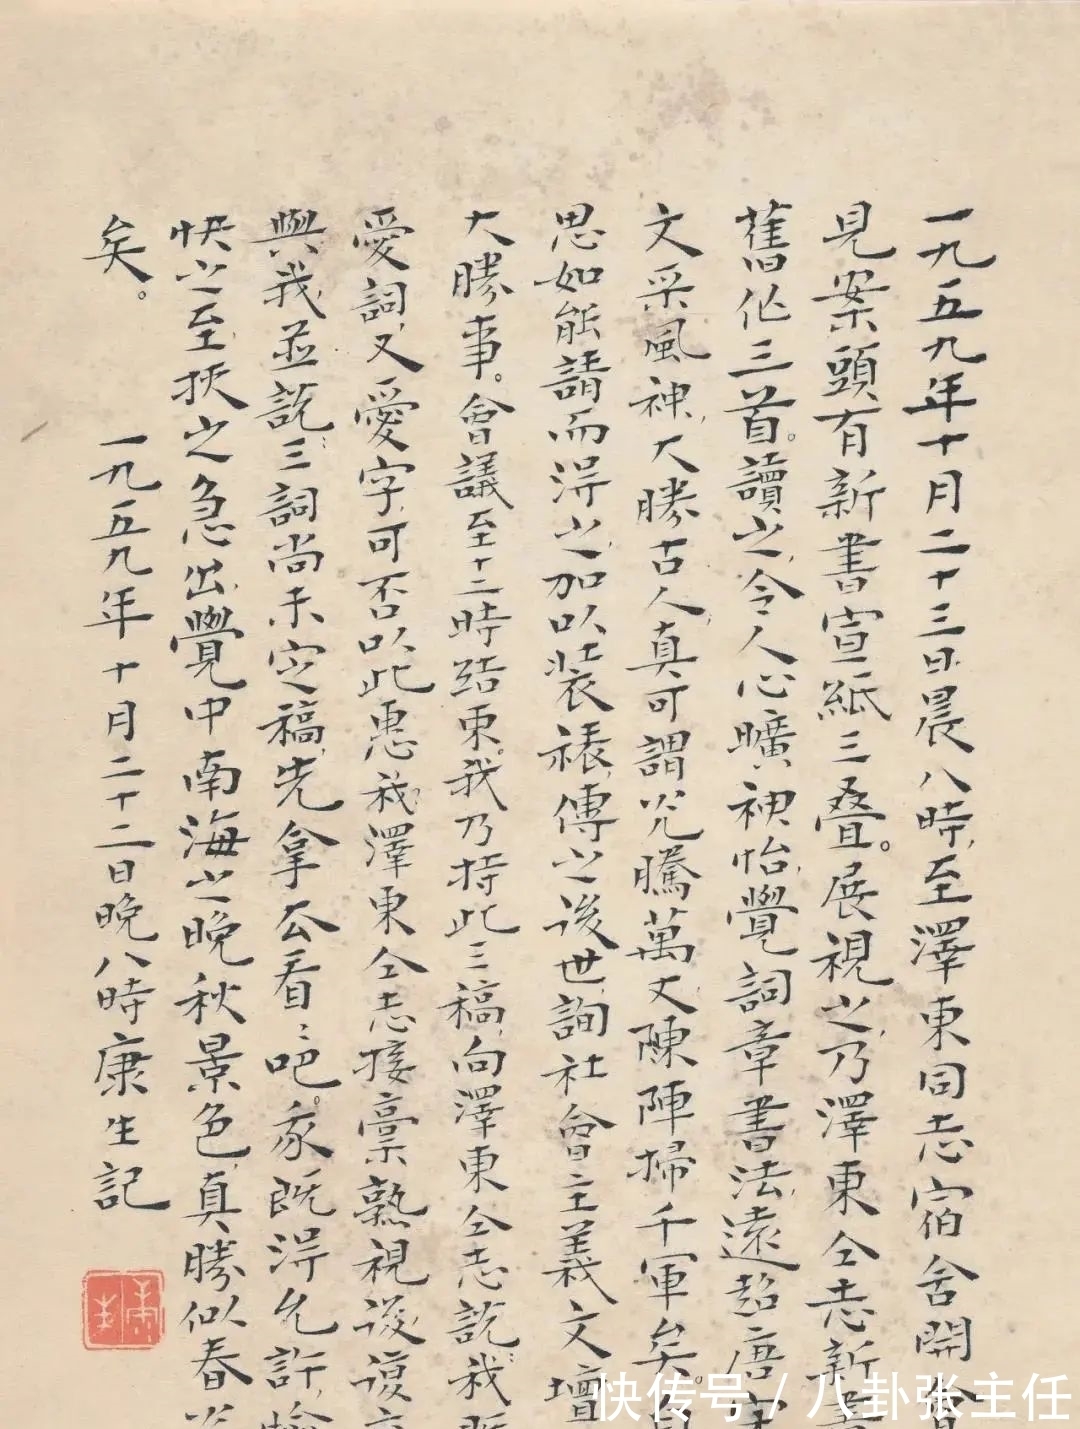 一九五九年十月二十三日晨八時,至澤東同志宿舍開會
見案頭有新書宣紙三叠。展視之,乃澤東仝志新書
舊作三首。讀之,令人心曠神怡,覺詞章書法,遠超唐宋
文采風神,大勝古人,真可謂光騰萬丈陳陣掃千軍矣。自
思如能請而淂之,加以裝裱,傳之後世,詢社會主義文壇
大勝事。會議至十二時結束。我乃持此三稿,向澤東仝志説:我既
愛詞,又愛字,可否以此惠我。澤東仝志接稾熟視後,復
與我並説:三詞尚未定稿,先拿去看看吧。我既淂允許,愉
快之至,挾之急出,覺中南海之晚秋景色,真勝似春光
矣。
一九五九年十月二十二日晚八時康生記
康生
快传号 / 八卦张主任